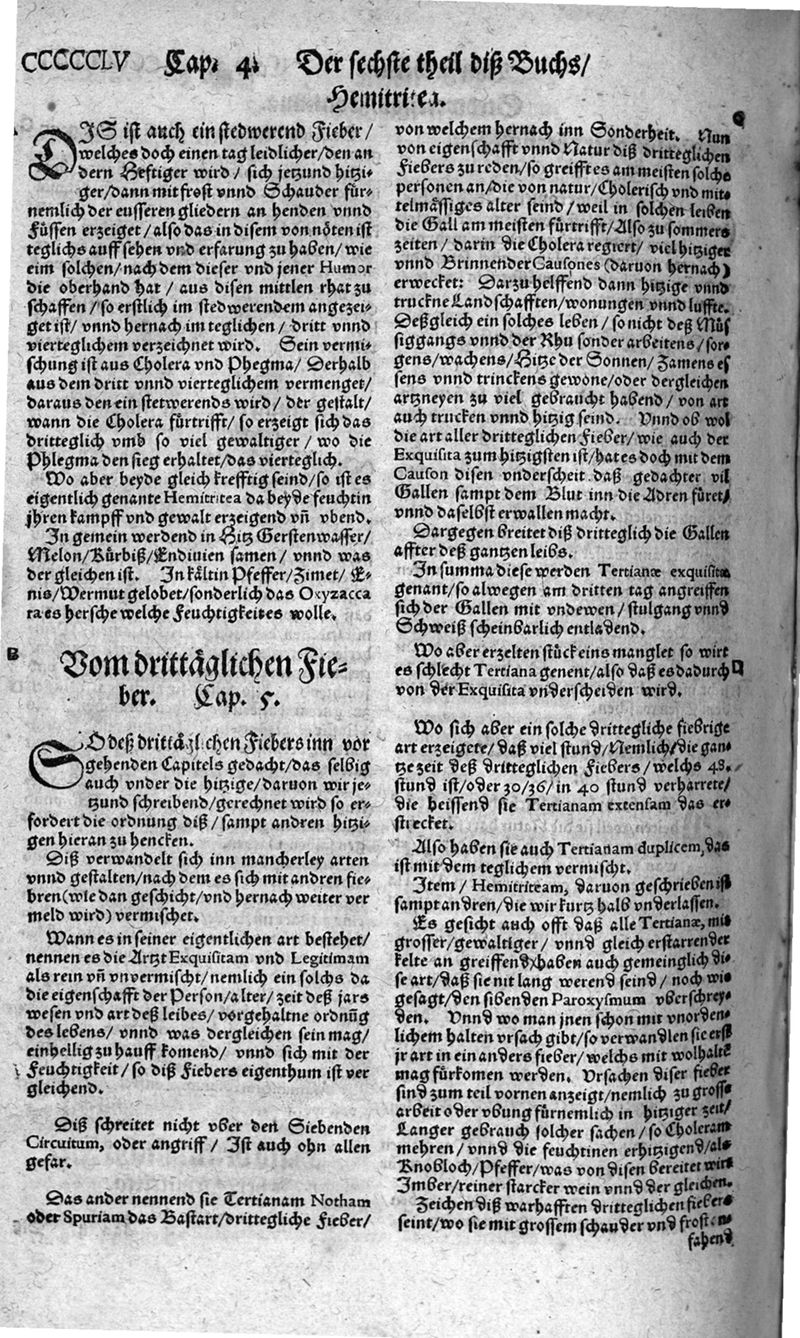 CCCCCCLV Cap. 4. Der sechste theil diß Buchs/
Hemitritea.
DIS ist auch ein stedwerend Fieber/
welches doch einen tag leidlicher/den an
dern Hefftiger wird/ sich jetzund hitzi-
ger/dann mit frost vnnd Schauder für-
nemlich der eusseren gliedern an henden vnnd
Füssen erzeiget/also das in disem von nöten ist
teglichs auff sehen vnd erfarung zu haben/wie
eim solchen/nach dem dieser vnd jener Humor
die oberhand hat/ aus disen mittlen rhat zu
schaffen/so erstlich im stedwerendem angezei-
get ist/ vnnd hernach im teglichen/ dritt vnnd
vierteglichem verzeichnet wird. Sein vermi-
schung ist aus Cholera vnd Phegma/ Derhalb
aus dem dritt vnnd vierteglichem vermenget/
daraus den ein stetwerends wird/ der gestalt/
wann die Cholera fürtrifft/ so erzeigt sich das
dritteglich vmb so viel gewaltiger/ wo die
Phlegma den sieg erhaltet/das vierteglich.
Wo aber beyde gleich krefftig seind/so ist es
eigentlich genante Hemitritea da beyde feuchtin
jhren kampff vnd gewalt erzeigend vñ vbend.
In gemein werdend in Hitz Gerstenwasser/
Melon/Kürbiß/Endiuien samen/ vnnd was
der gleichen ist. In kältin Pfeffer/Zimet/ E-
nis/Wermut gelobet/sonderlich das Oxyzacca
ra es hersche welche Feuchtigkeit es wolle.
B
Vom drittäglichen Fie-
ber. Cap. 5.
SO deß drittäglichen Fiebers inn vor
gehenden Capitels gedacht/das selbig
auch vnder die hitzige/daruon wir je-
tzund schreibend/gerechnet wird so er-
fordert die ordnung diß/ sampt andren hitzi-
gen hieran zu hencken.
Diß verwandelt sich inn mancherley arten
vnnd gestalten/nach dem es sich mit andren fie-
bren (wie dan geschicht/vnd hernach weiter ver
meld wird) vermischet.
Wann es in seiner eigentlichen art bestehet/
nennen es die Artzt Exquisitam vnd Legitimam
als rein vñ vnvermischt/nemlich ein solchs da
die eigenschafft der Person/alter/ zeit deß jars
wesen vnd art deß leibes/ vorgehaltne ordnũg
des lebens/ vnnd was dergleichen sein mag/
einhellig zu hauff komend/ vnnd sich mit der
Feuchtigkeit/ so diß Fiebers eigenthum ist ver
gleichend.
Diß schreitet nicht vber den Siebenden
Circuitum, oder angriff/ Ist auch ohn allen
gefar.
Das ander nennend sie Tertianam Notham
oder Spuriam das Bastart/drittegliche Fieber/
von welchem hernach inn Sonderheit. Nun
von eigenschafft vnnd Natur diß dritteglichen
Fiebers zu reden/so greifft es am meisten solche
personen an/die von natur/Cholerisch vnd mit-
telmässiges alter seind/ weil in solchen leiben
die Gall am meisten fürtrifft/Also zu sommers
zeiten/ darin die Cholera regiert/ viel hitziger
vnnd Brinnender Causones (daruon hernach)
erwecket: Darzu helffend dann hitzige vnnd
truckne Landschafften/wonungen vnnd luffte.
Deßgleich ein solches leben/ so nicht deß Müs
siggangs vnnd der Rhu sonder arbeitens/sor-
gens/wachens/Hitze der Sonnen/Zamens es
sens vnnd trinckens gewone/oder dergleichen
artzneyen zu viel gebraucht habend/ von art
auch trucken vnnd hitzig seind. Vnnd ob wol
die art aller dritteglichen Fieber/ wie auch der
Exquisita zum hitzigsten ist/hat es doch mit dem
Causon disen vnderscheit daß gedachter vil
Gallen sampt dem Blut inn die Adren füret/
vnnd daselbst erwallen macht.
Dargegen breitet diß dritteglich die Gallen
affter deß gantzen leibs.
In summa diese werden Tertianæ exquisitæ
genant/so alwegen am dritten tag angreiffen
sich der Gallen mit vndewen/ stulgang vnnd
Schweiß scheinbarlich entladend.
Wo aber erzelten stück eins manglet so wirt
es schlecht Tertiana genent/also daß es dadurch
von der Exquisita vnderscheiden wird.
Wo sich aber ein solche drittegliche fiebrige
art erzeigete/ daß viel stund/Nemlich/die gan-
tze zeit deß dritteglichen Fiebers/ welchs 48.
stund ist/oder 30/36/ in 40 stund verharrete/
die heissend sie Tertianam extensam das er-
strecket.
Also haben sie auch Tertianam duplicem, das
ist mit dem teglichem vermischt.
Item/ Hemitriteam, daruon geschrieben ist
sampt andren/die wir kurtz halb vnderlassen.
Es gesicht auch offt daß alle Tertianæ, mit
grosser/gewaltiger/ vnnd gleich erstarrender
kelte an greiffend/haben auch gemeinglich di-
se art/daß sie nit lang werend seind/ noch wie
gesagt/den sibenden Paroxysmum vberschrey-
den. Vnnd wo man jnen schon mit vnorden-
lichem halten vrsach gibt/so verwandlen sie erst
jr art in ein anders fieber/welchs mit wolhalte
mag fürkomen werden. Vrsachen diser fieber
sind zum teil vornen anzeigt/nemlich zu grosse
arbeit oder vbung fürnemlich in hitziger zeit/
Langer gebrauch solcher sachen/ so Choleram
mehren/ vnnd die feuchtinen erhitzigend/als
Knobloch/Pfeffer/was von disen bereitet wirt
Imber/reiner starcker wein vnnd der gleichen.
Zeichen diß warhafften dritteglichen fiebers
seint/wo sie mit grossem schauder vnd frost an
fahend